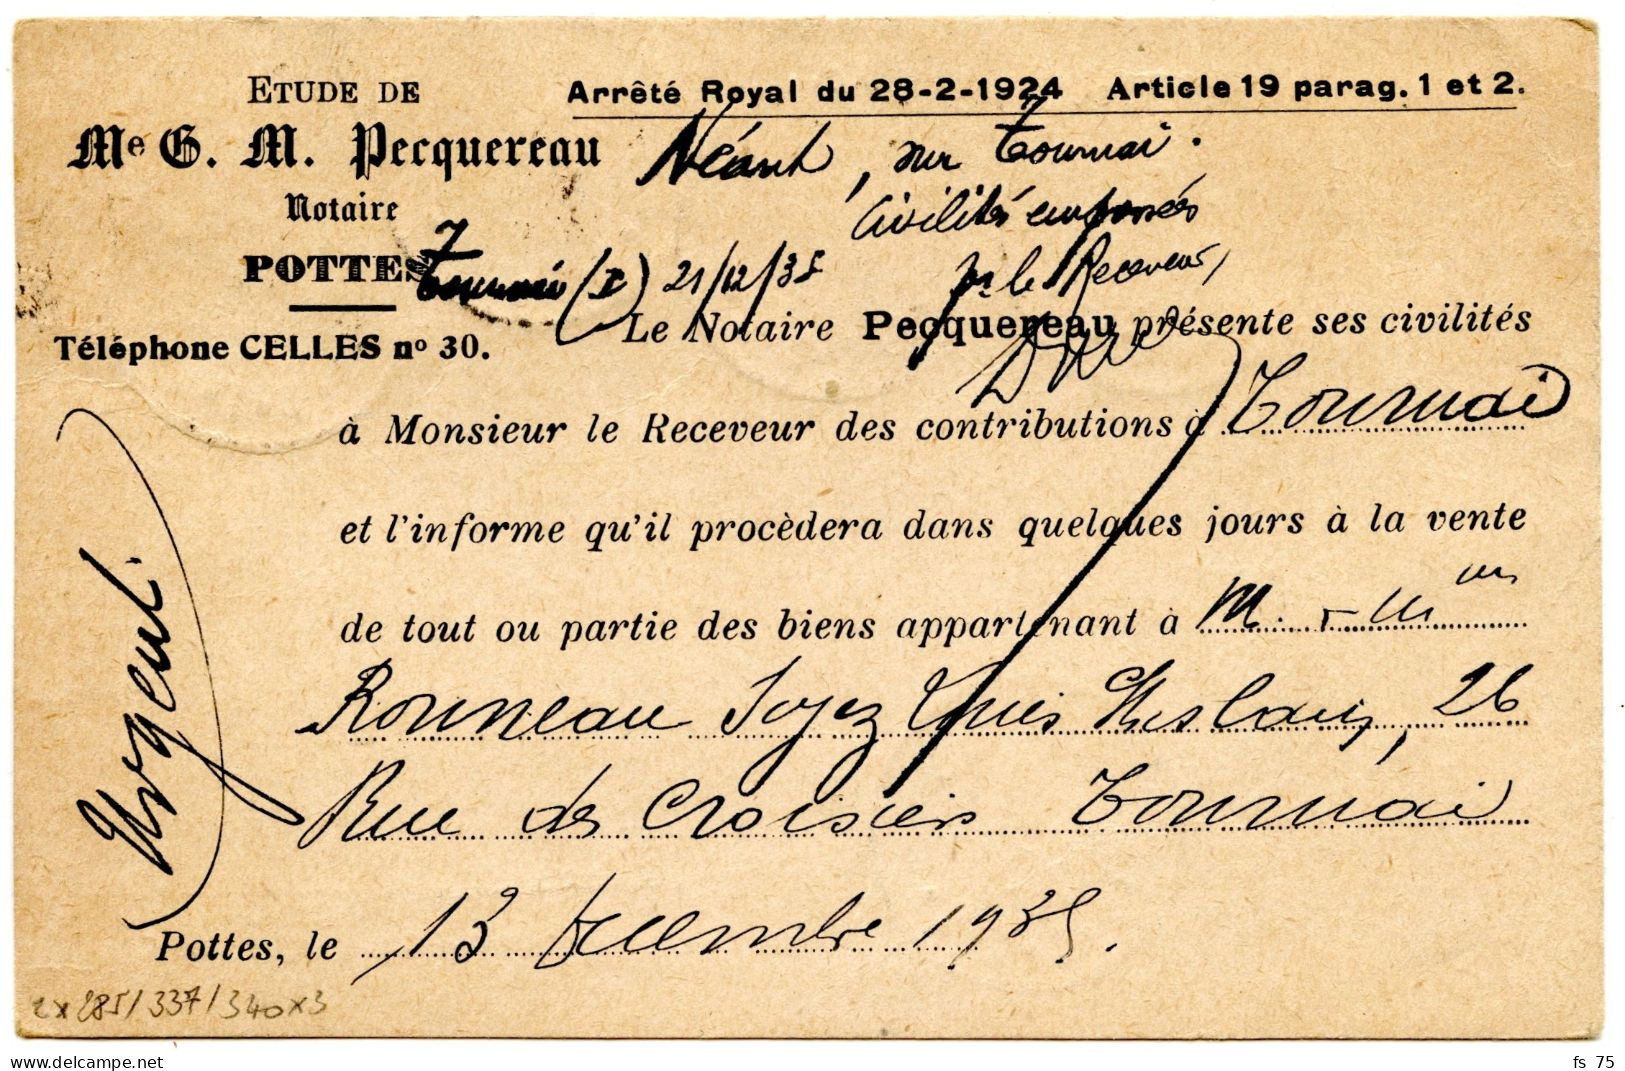 ETUDE DE
Me G. M. Pecquereau
Notaire
POTTES
Téléphone CELLES no 30.
Arrêté Royal du 28-2-1924 Article 19 parag. 1 et 2.
Néant, sur Tournai.
Civilités empressées
Tournai (I) 21/12/35
le Receveur,
Le Notaire Pecquereau présente ses civilités
à Monsieur le Receveur des contributions à Tournai
et l'informe qu'il procèdera dans quelques jours à la vente
de tout ou partie des biens appartenant à M.
Ronneau, 26
Rue des Croisiers Tournai
Urgent.
Pottes, le 13 décembre 1935.
2x285/337/340x3
www.delcampe.net
fs_75